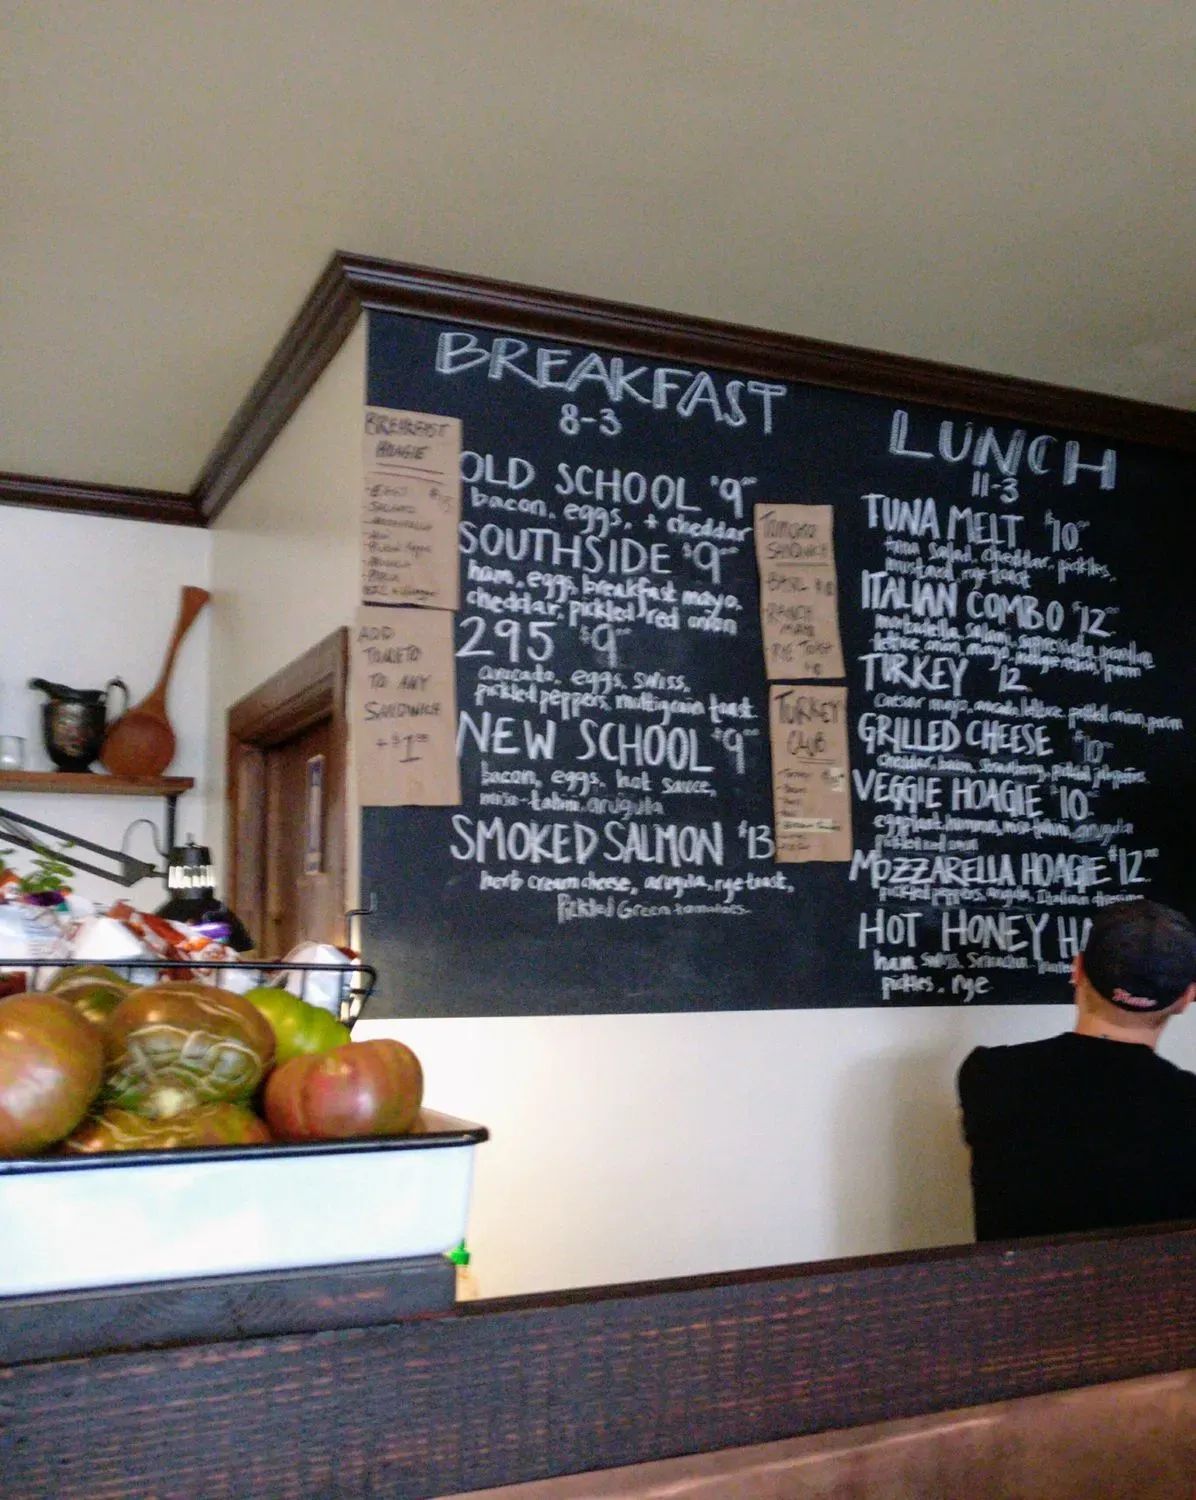 BREAKFAST
8-3
BREAKFAST
HOAGIE
- EGGS
SALAMI
ADD
TOMATO
TO ANY
SANDWICH
+ $1.00
OLD SCHOOL $9
bacon, eggs, + cheddar
SOUTHSIDE $9
ham, eggs, breakfast mayo,
cheddar, pickled red onion
295 $9
avocado, eggs, swiss,
pickled peppers, multigrain toast
NEW SCHOOL $9
bacon, eggs, hot sauce,
miso-tahini, arugula
SMOKED SALMON $13
herb cream cheese, arugula, rye toast,
Pickled Green tomatoes
TOMATO
SANDWICH
- BASIL
- RANCH
MAYO
RYE TOAST
TURKEY
CLUB
LUNCH
11-3
TUNA MELT $10
tuna salad, cheddar, pickles,
mustard, rye toast
ITALIAN COMBO $12
mortadella, salami, soppressata, provolone,
lettuce, onion, mayo, hoagie relish, parm
TURKEY 12
Caesar mayo, avocado, lettuce, pickled onion, parm
GRILLED CHEESE $10
cheddar, havarti, strawberry, pickled jalapeños
VEGGIE HOAGIE $10
eggplant, hummus, miso-tahini, arugula
pickled red onion
MOZZARELLA HOAGIE $12
pickled peppers, arugula, Italian dressing
HOT HONEY HA
ham, swiss, Sriracha,
pickles, rye